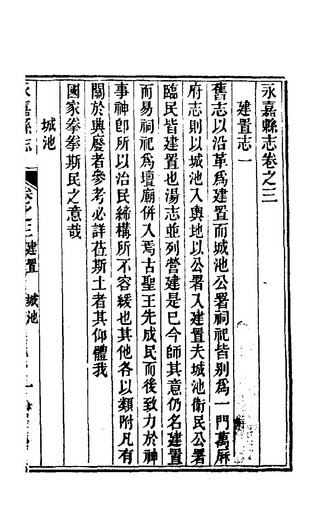 永嘉縣志卷之三
建置志一
舊志以沿革爲建置而城池公署祠祀皆别爲一門萬厯
府志則以城池入輿地以公署入建置夫城池衛民公署
臨民皆建置也湯志並列營建是已今師其意仍名建置
而易祠祀爲壇廟併入焉古聖王先成民而後致力於神
事神卽所以治民締構所不容緩也其他各以類附凡有
關於興廢者參考必詳莅斯土者其仰體我
國家拳拳斯民之意哉
城池
永嘉縣志
卷之三建置
城池
一